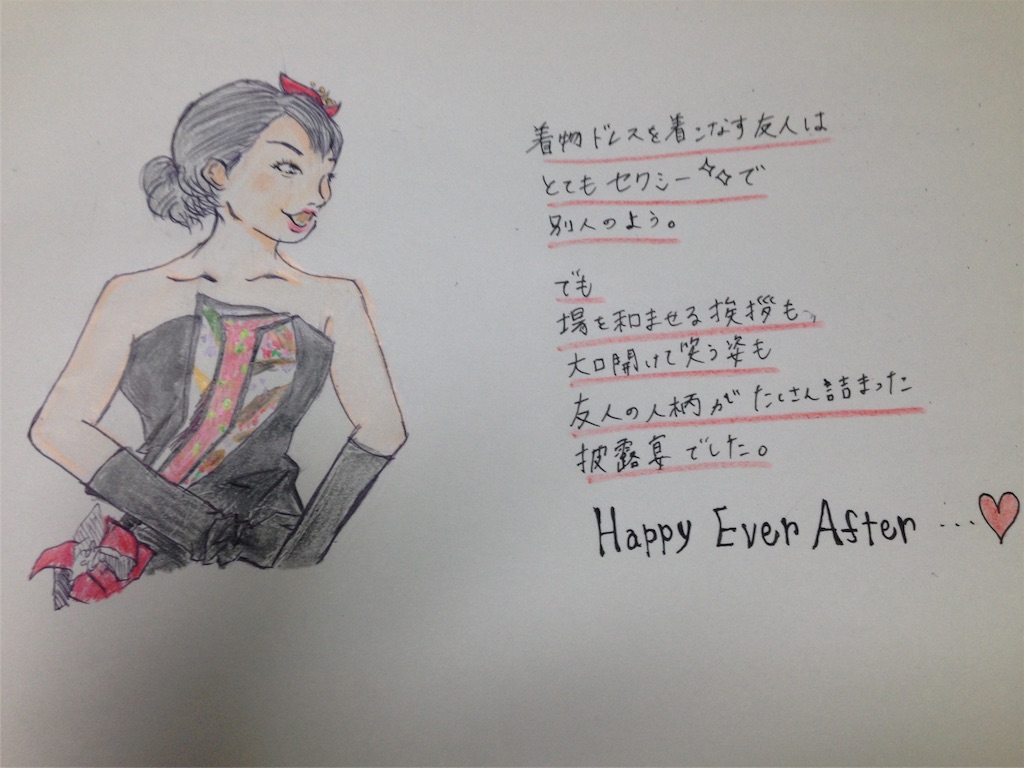 着物ドレスを着こなす友人は
とてもセクシー✧✧で
別人のよう。
でも
場を和ませる挨拶も、
大口開けて笑う姿も
友人の人柄がたくさん詰まった
披露宴でした。
Happy Ever After …♡